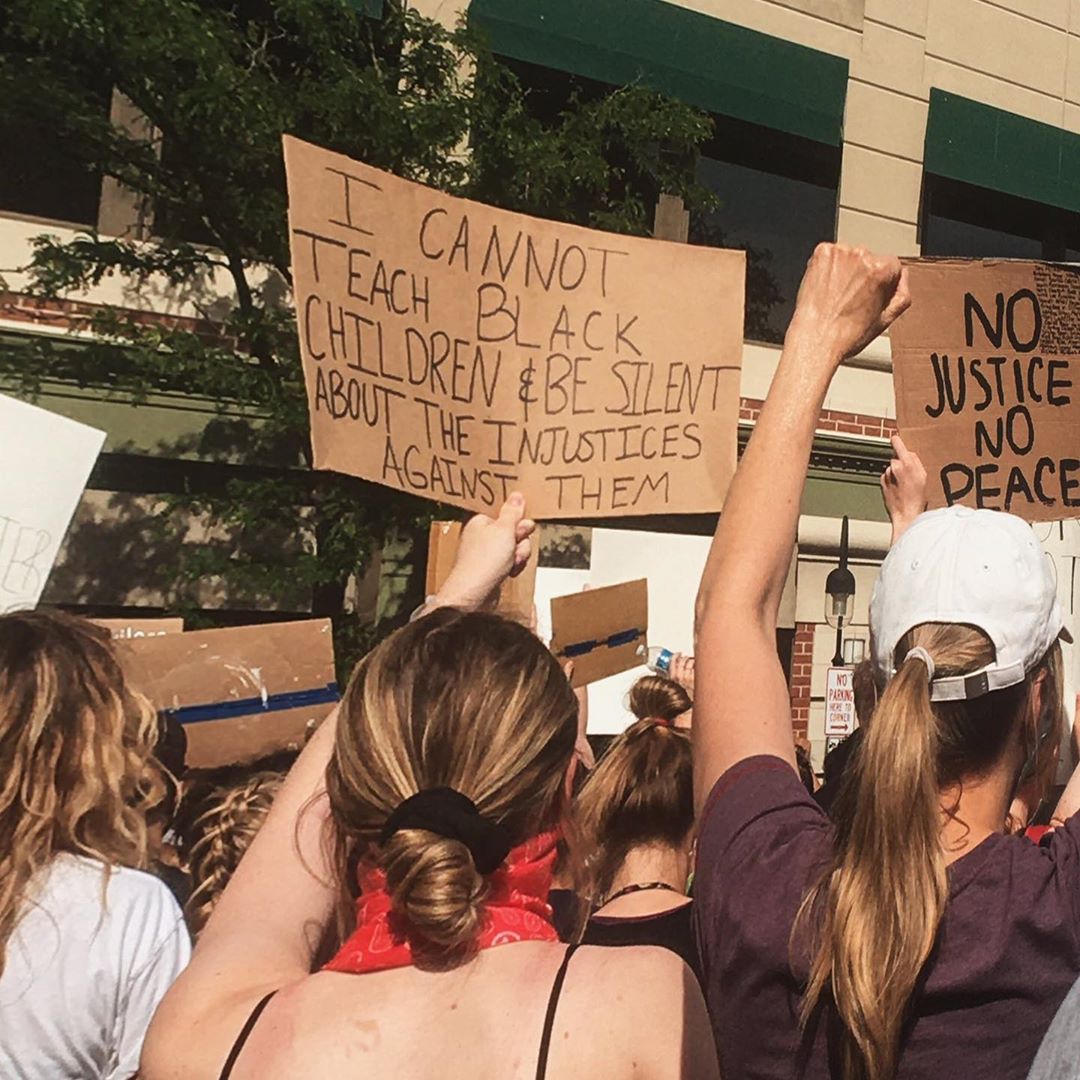 I CANNOT
TEACH BLACK
CHILDREN & BE SILENT
ABOUT THE INJUSTICES
AGAINST THEM
NO
JUSTICE
NO
PEACE
NO
PARKING
HERE TO
CORNER